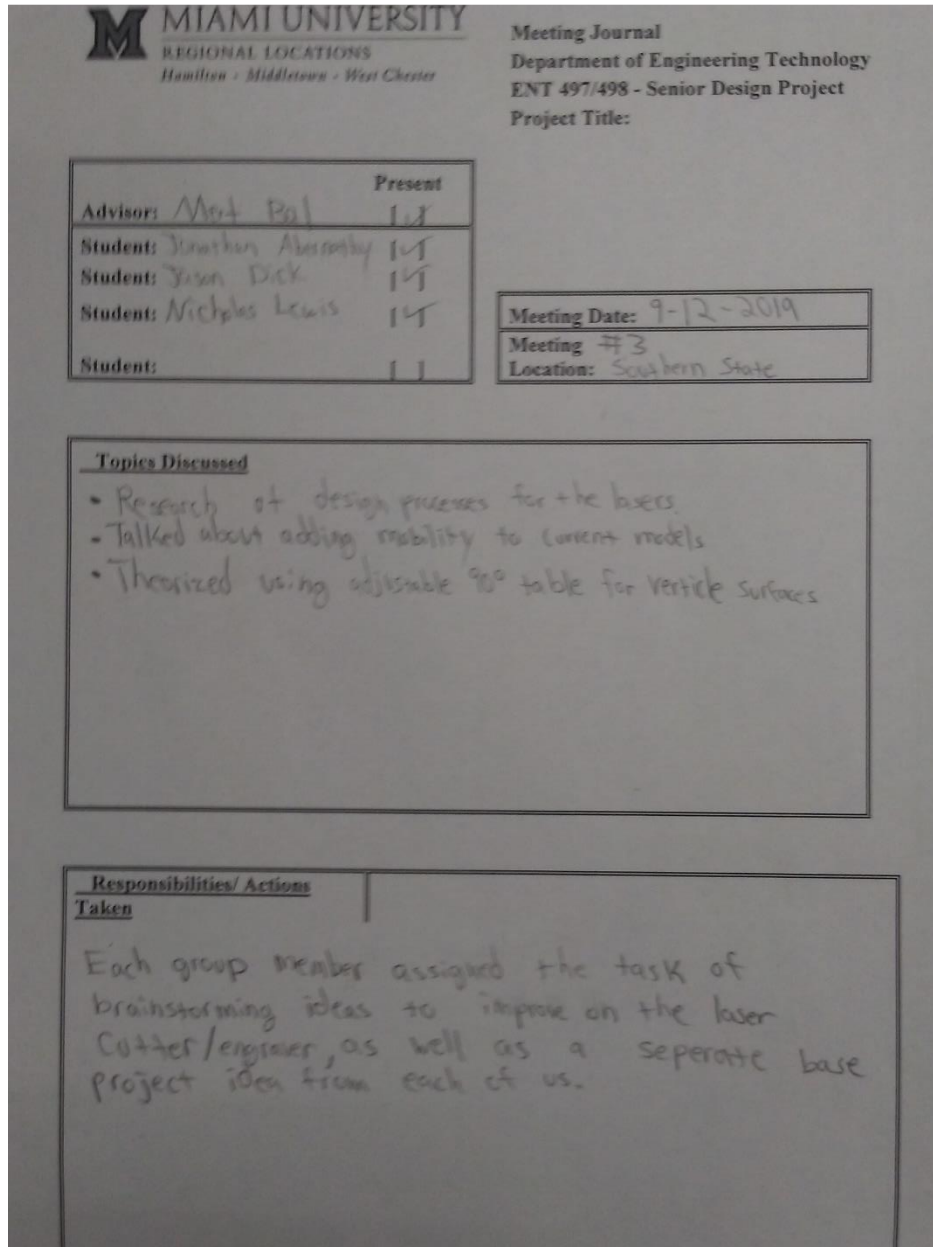 MIAMI UNIVERSITY
REGIONAL LOCATIONS
Hamilton - Middletown - West Chester
Meeting Journal
Department of Engineering Technology
ENT 497/498 - Senior Design Project
Project Title:
Present
Advisor:
Student: Jonathan
Student: Dick
Student: Nicholas Lewis
Student:
Meeting Date: 9-12-2019
Meeting #3
Location: Southern State
Topics Discussed
• Research of design processes for the lasers.
• Talked about adding mobility to current models
• Theorized using adjustable 90° table for verticle surfaces
Responsibilities/ Actions
Taken
Each group member assigned the task of
brainstorming ideas to improve on the laser
Cutter/engraver, as well as a seperate base
project idea from each of us.